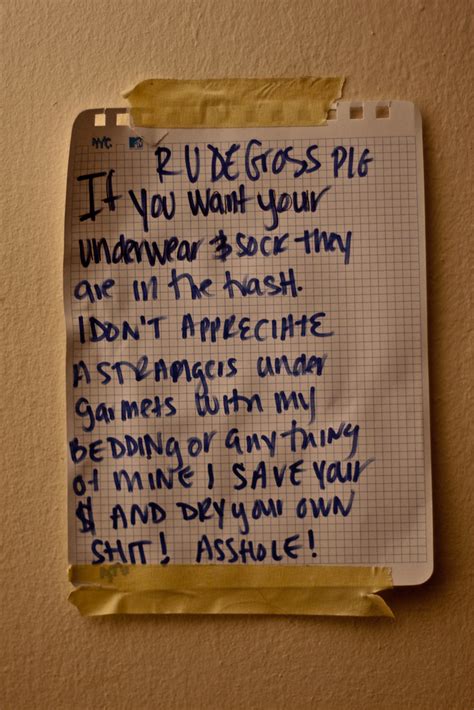 RUDE GROSS PIG
If you want your
underwear & sock they
are in the trash.
I DON'T APPRECIATE
A STRANGERS under
garmets with my
BEDDING or anything
of MINE I SAVE your
$ AND DRY your OWN
SHIT! ASSHOLE!